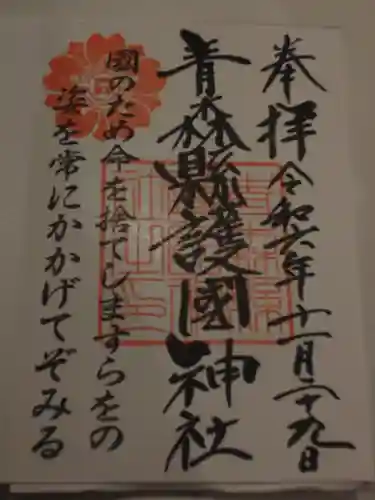 奉拝 令和六年十一月二十九日
青森縣護國神社
國のため命を捨てしますらをの
姿を常にかかげてぞみる